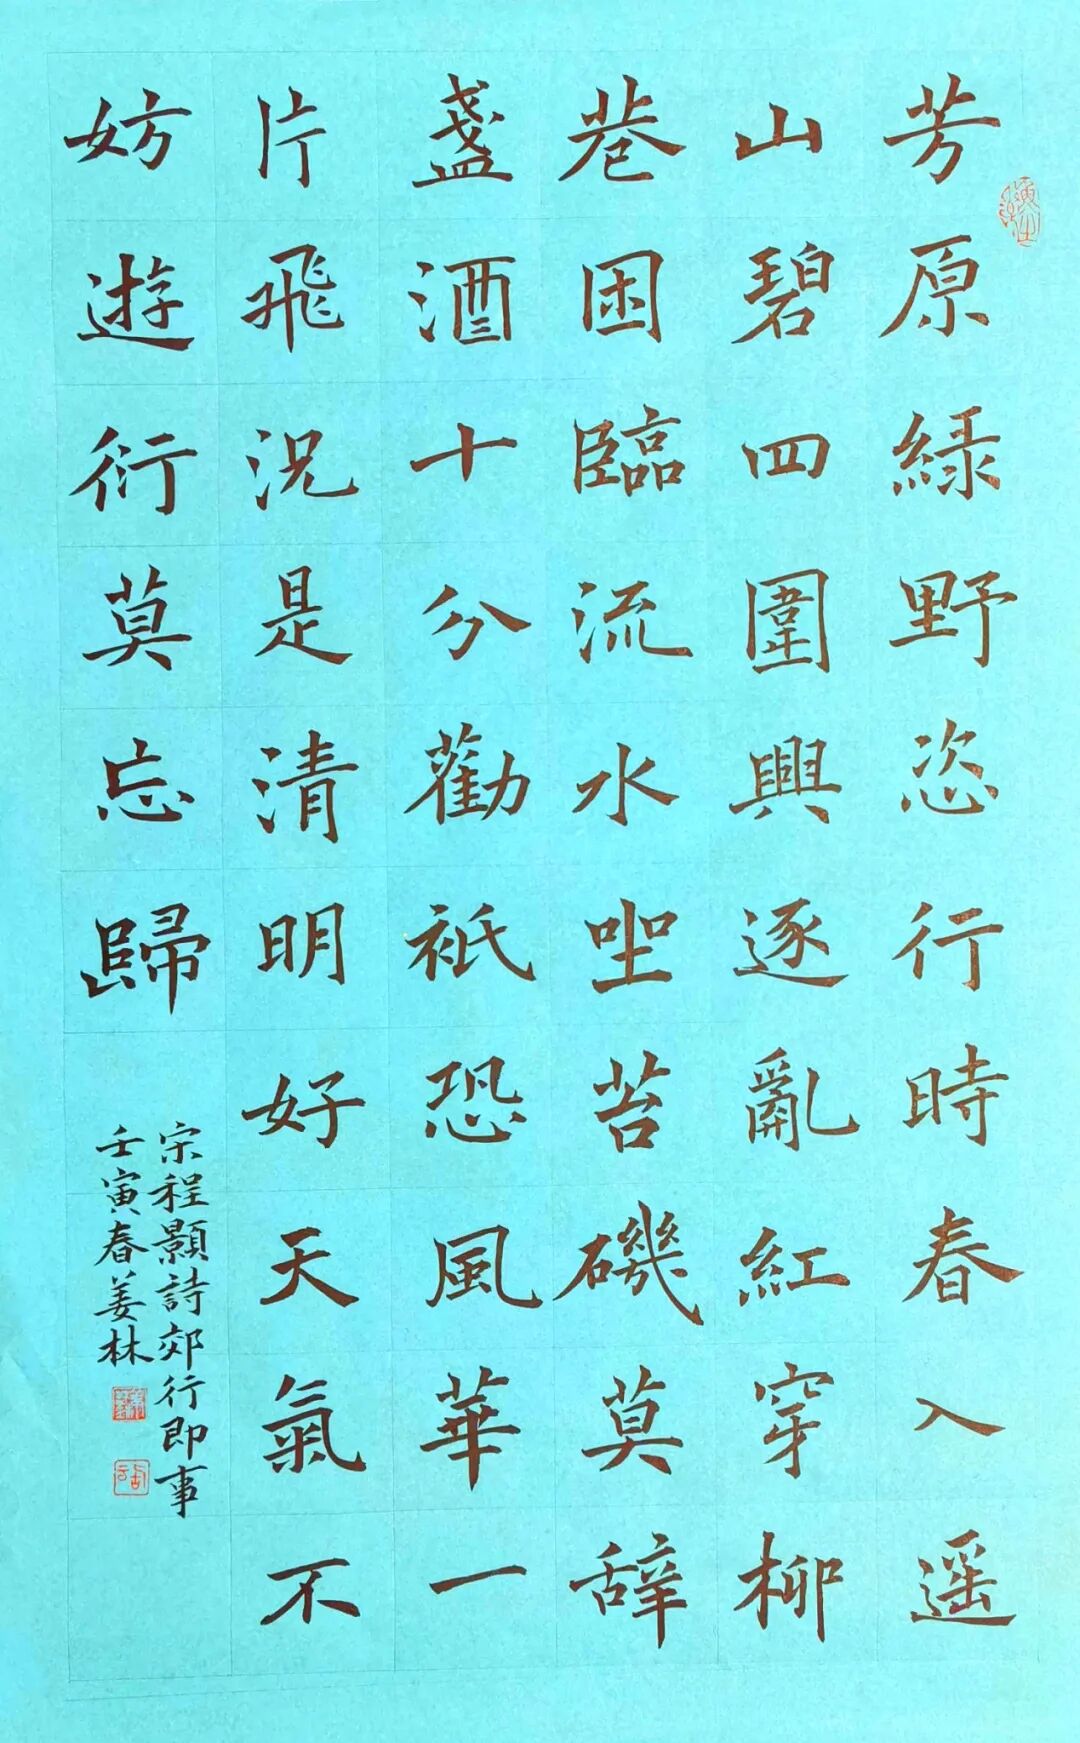 芳原綠野恣行時春入遥
山碧四圍興逐亂紅穿柳
巷困臨流水坐苔磯莫辭
盞酒十分勸祇恐風華一
片飛況是清明好天氣不
妨遊衍莫忘歸
宋程顥詩郊行即事
壬寅春姜林